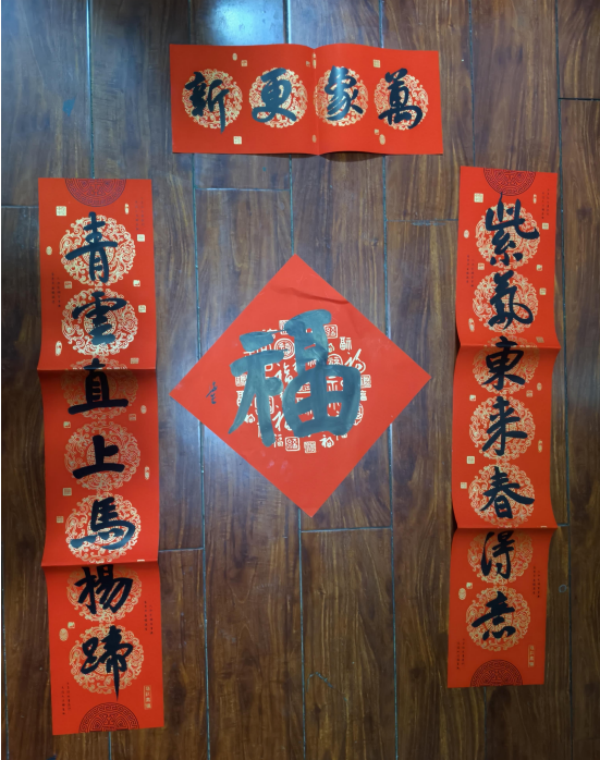 萬象更新
紫氣東来春得意
青雲直上馬楊蹄
福